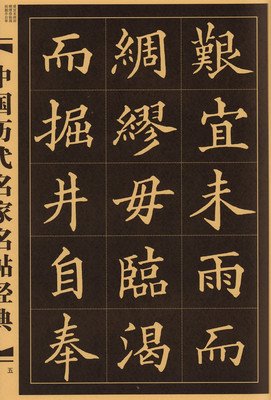 艱宜未雨而
綢繆毋臨渴
而掘井自奉
中国历代名家名帖经典
五